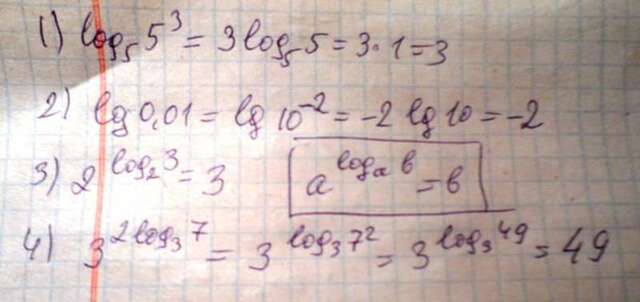 1) log₅ 5³ = 3 log₅ 5 = 3·1 = 3
2) lg 0,01 = lg 10⁻² = -2 lg 10 = -2
3) 2^(log₂ 3) = 3 a^(logₐ b) = b
4) 3^(2 log₃ 7) = 3^(log₃ 7²) = 3^(log₃ 49) = 49